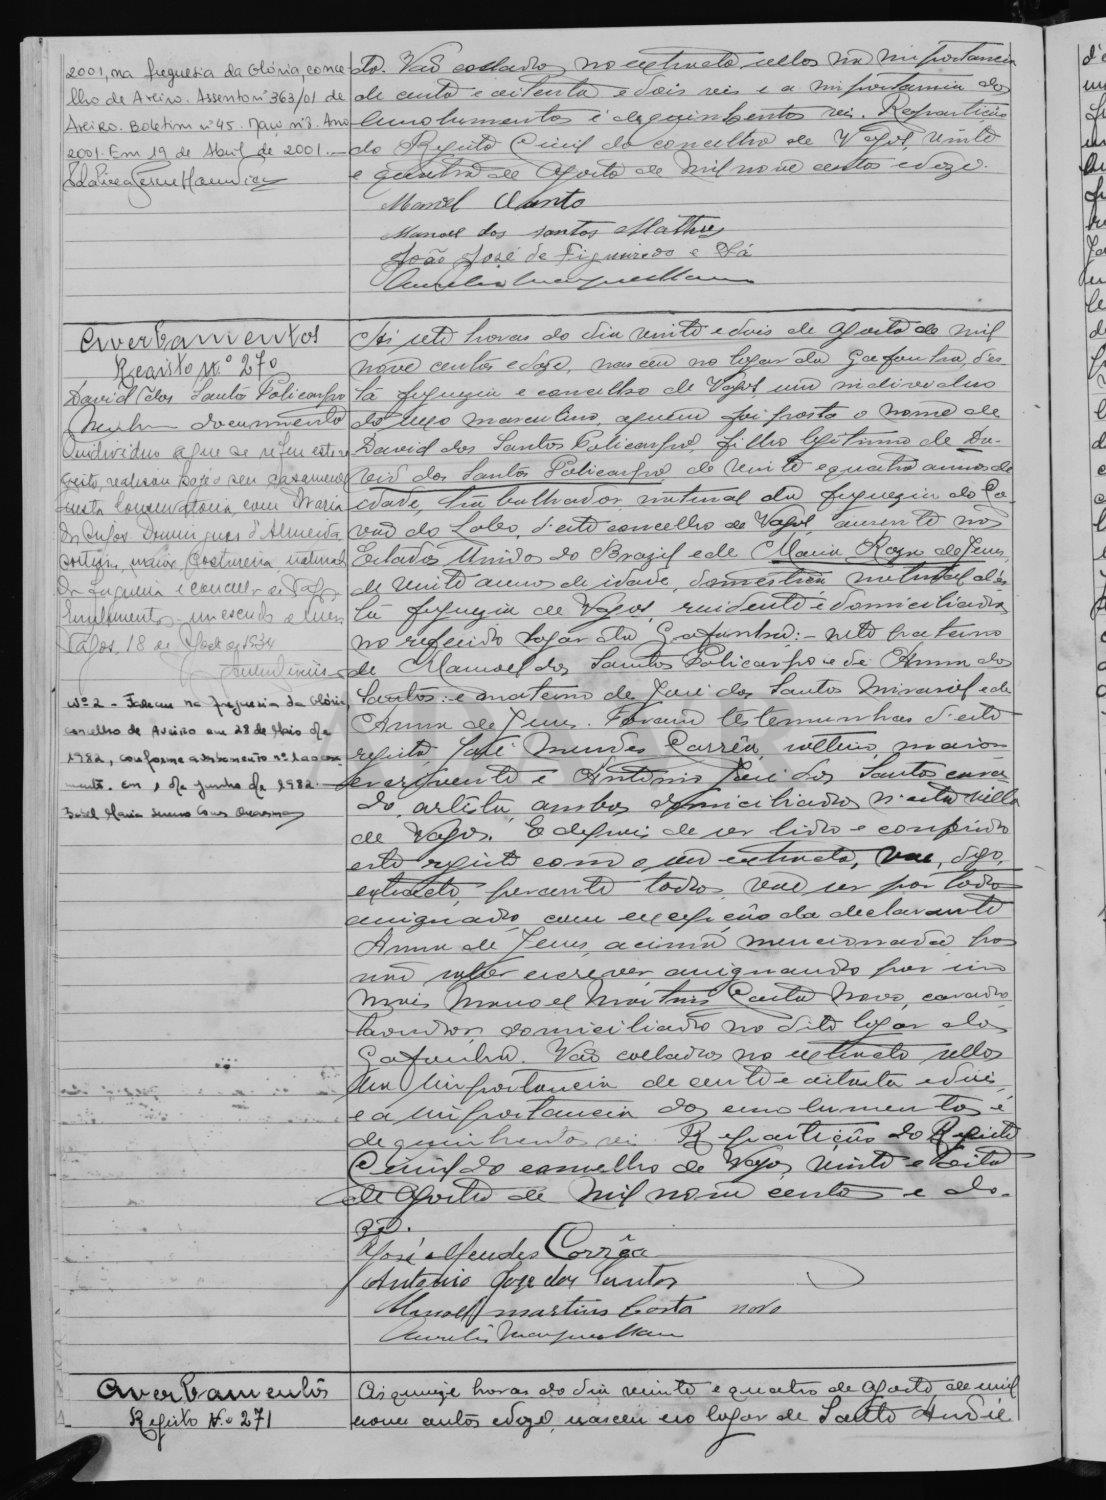 2001, na freguesia da Glória, conce-
lho de Aveiro. Assento nº 363/01 de
Aveiro. Boletim nº 45. Maço nº 3. Ano
2001. Em 19 de Abril de 2001.
do. Vão collados no extracto sellos na importancia
de cento e oitenta e dois reis e a importancia dos
emolumentos é de quinhentos reis. Repartição
do Registo Civil do concelho de Vagos, vinte
e quatro de Agosto de mil nove centos e doze.
Manoel
Manoel dos santos Matheus
João José de Figueiredo e Sá
Averbamentos
Registo Nº 270
David dos Santos Policarpo
documento
O individuo a que se refere este re-
gisto, realisou hoje o seu casamento
nesta Conservatoria, com Maria
Domingues d'Almeida
natural
da freguesia e concelho de Vagos.
Emolumentos um escudo e
Vagos, 18 de de 1934
Nº 2 - Faleceu na freguesia da Glória
concelho de Aveiro em 28 de Maio de
1982, conforme averbamento nº 1 ao
Em 1 de Junho de 1982.
Ás sete horas do dia vinte e dois de Agosto de mil
nove centos e doze, nasceu no logar da Gafanha, d'es-
ta freguezia e concelho de Vagos um individuo
do sexo masculino, a quem foi posto o nome de
David dos Santos Policarpo, filho legitimo de Da-
vid dos Santos Policarpo de vinte e quatro annos de
idade, trabalhador, natural da freguezia do Co-
vão do Lobo, d'este concelho de Vagos ausente nos
Estados Unidos do Brazil e de Maria Rosa de Jesus,
de vinte annos de idade, domestica natural d'es-
ta freguezia de Vagos, residente e domiciliada
no referido logar da Gafanha: - neto paterno
de Manuel dos Santos Policarpo e de Anna dos
Santos: e materno de José dos Santos e de
Anna de Jesus. Foram testemunhas d'este
registo, José Mendes Corrêa, solteiro, maior
escrevente e Antonio José dos Santos casa-
do, artista, ambos domiciliados n'esta villa
de Vagos. E depois de ser lido e conferido
este registo com o seu extracto, vae, digo,
extracto, perante todos vae ser por todos
assignado, com excepção da declarante
Anna de Jesus, acima mencionada por
não saber escrever, assignando por
Manoel Martins Costa Novo, casado,
lavrador, domiciliado no dito logar da
Gafanha. Vão collados no extracto sellos
na importancia de cento e oitenta e dois
e a importancia dos emolumentos é
de quinhentos reis. Repartição do Registo
Civil do concelho de Vagos vinte e oito
de Agosto de mil nove centos e do-
ze.
José Mendes Corrêa
Antonio Joze dos Santos
Manoel martins Costa novo
Averbamentos
Registo N.º 271
As quinze horas do dia vinte e quatro de Agosto de mil
nove centos e doze, nasceu no logar de Santo André